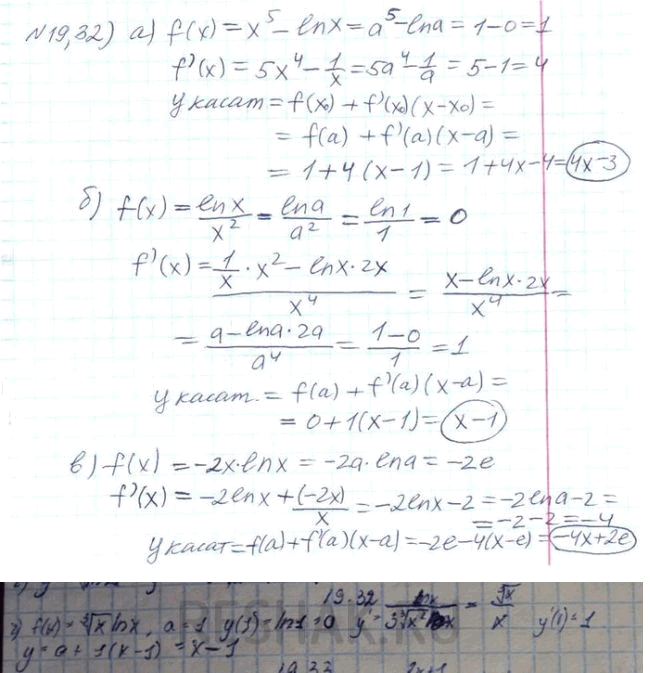 №19,32) а) f(x) = x⁵ - lnx = a⁵ - lna = 1-0=1
f'(x) = 5x⁴ - 1/x = 5a⁴ - 1/a = 5-1=4
y касат = f(x₀) + f'(x₀)(x-x₀) =
= f(a) + f'(a)(x-a) =
= 1+4(x-1) = 1+4x-4 = 4x-3
б) f(x) = lnx/x² = lna/a² = ln1/1 = 0
f'(x) = (1/x · x² - lnx·2x)/x⁴ = (x-lnx·2x)/x⁴ =
= (a-lna·2a)/a⁴ = (1-0)/1 = 1
y касат. = f(a) + f'(a)(x-a) =
= 0+1(x-1) = x-1
в) f(x) = -2x·lnx = -2a·lna = -2e
f'(x) = -2lnx + (-2x)/x = -2lnx-2 = -2lna-2 =
= -2-2 = -4
y касат = f(a)+f'(a)(x-a) = -2e-4(x-e) = -4x+2e
19.32
г) f(x) = ∛x lnx, a=1 y(1) = ln1=0 y' = y'(1)=1
y = a + 1(x-1) = x-1
RESHAK.RU
19.33